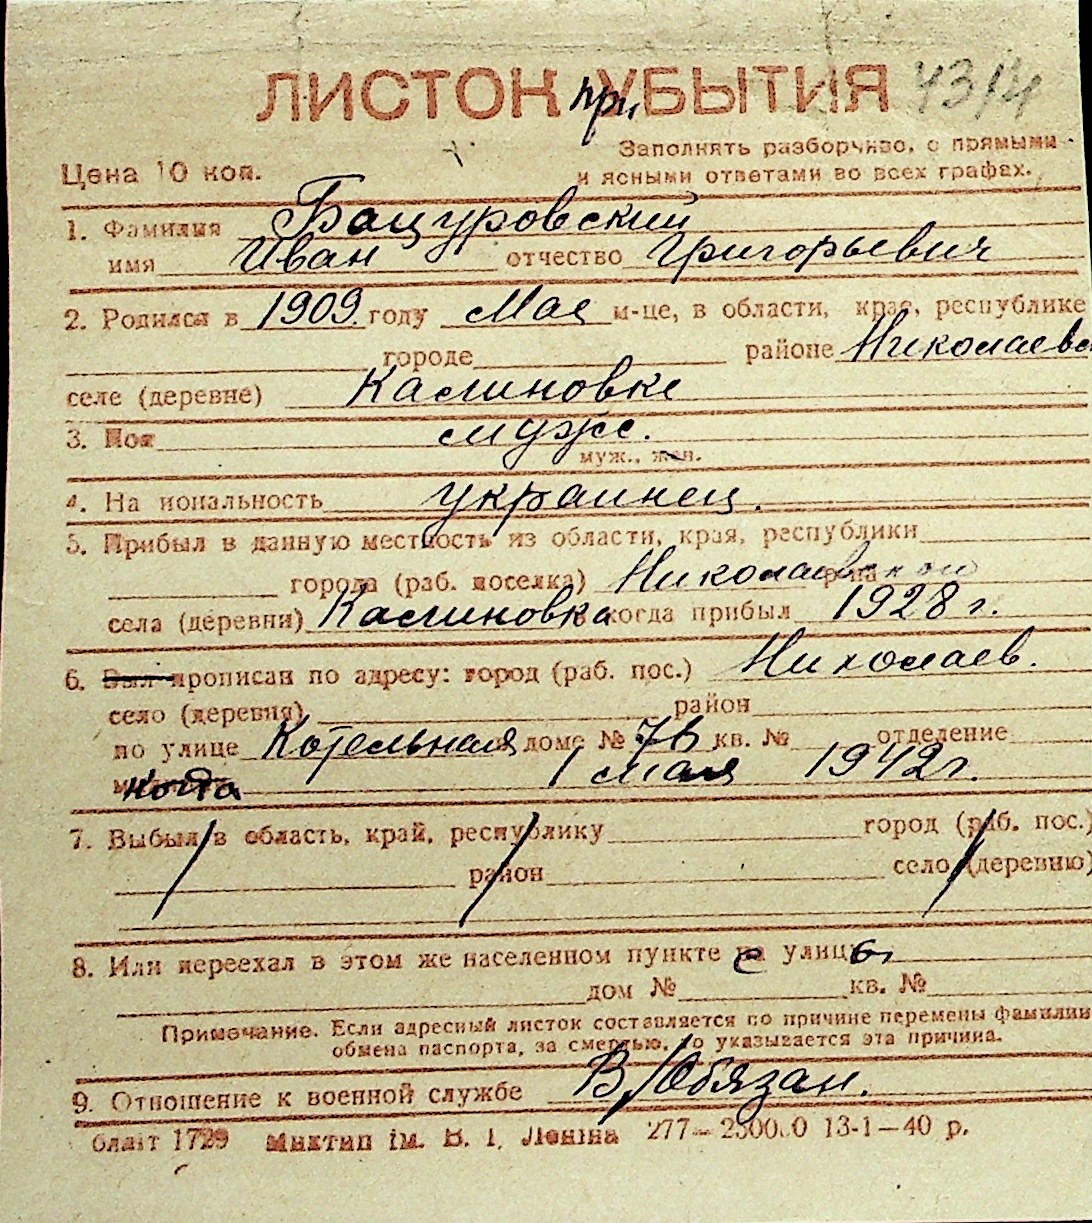 ЛИСТОК при УБЫТИЯ 4314
Заполнять разборчиво, с прямыми
Цена 10 коп. и ясными ответами во всех графах.
1. Фамилия Бацуровский
имя Иван отчество Григорьевич
2. Родился в 1909 году Мае м-це, в области, крае, республике
городе районе Николаевс
селе (деревне) Калиновке
3. Пол муж.
муж., жен.
4. Национальность украинец.
5. Прибыл в данную местность из области, края, республики
города (раб. поселка) Николаевской р-на
села (деревни) Калиновка когда прибыл 1928 г.
6. Был прописан по адресу: город (раб. пос.) Николаев.
село (деревня) район
по улице Котельная доме № 7в кв. № отделение
когда 1 мая 1942 г.
7. Выбыл в область, край, республику город (раб. пос.)
район село (деревню)
8. Или переехал в этом же населенном пункте с улицы
дом № кв. №
Примечание. Если адресный листок составляется по причине перемены фамилии
обмена паспорта, за смертью, то указывается эта причина.
9. Отношение к военной службе В/Обязан.
блант 1729 Миктип ім. В. І. Леніна 277— 13-1—40 р.